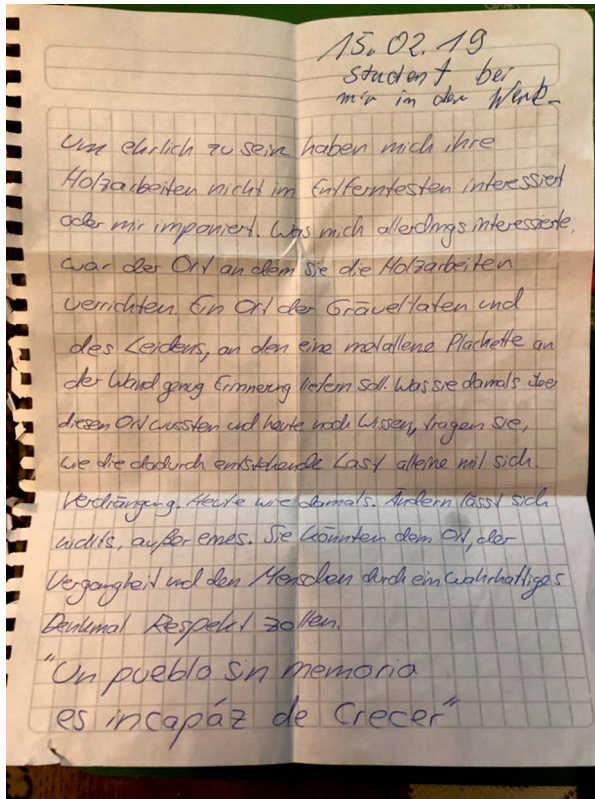 15.02.19
Student bei
mir in der Werk-
Um ehrlich zu sein haben mich ihre
Holzarbeiten nicht im Entferntesten interessiert
oder mir imponiert. Was mich allerdings interessierte,
war der Ort an dem sie die Holzarbeiten
verrichten. Ein Ort der Gräueltaten und
des Leidens, an den eine metallene Plachette an
der Wand genug Erinnerung liefern soll. Was sie damals über
diesen Ort wussten und heute noch wissen, tragen sie,
wie die dadurch entstehende Last alleine mit sich.
Verdrängung. Heute wie damals. Ändern lässt sich
nichts, außer eines. Sie könnten dem Ort, der
Vergangheit und den Menschen durch ein wahrhaftiges
Denkmal Respekt zollen.
"Un pueblo sin memoria
es incapáz de crecer"